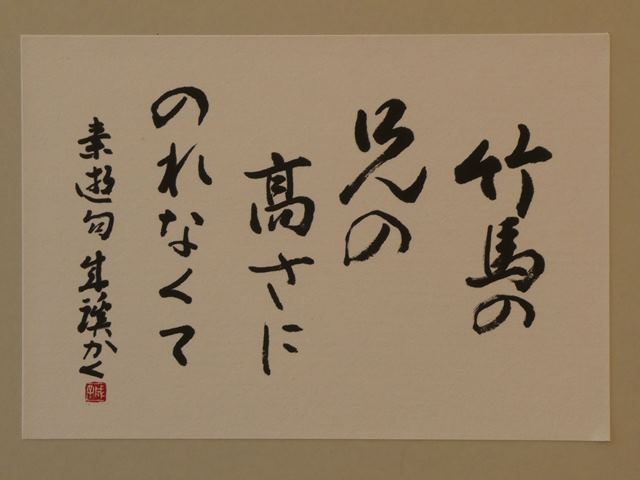 竹馬の
兄の
高さに
のれなくて
素逝句 成蹊かく